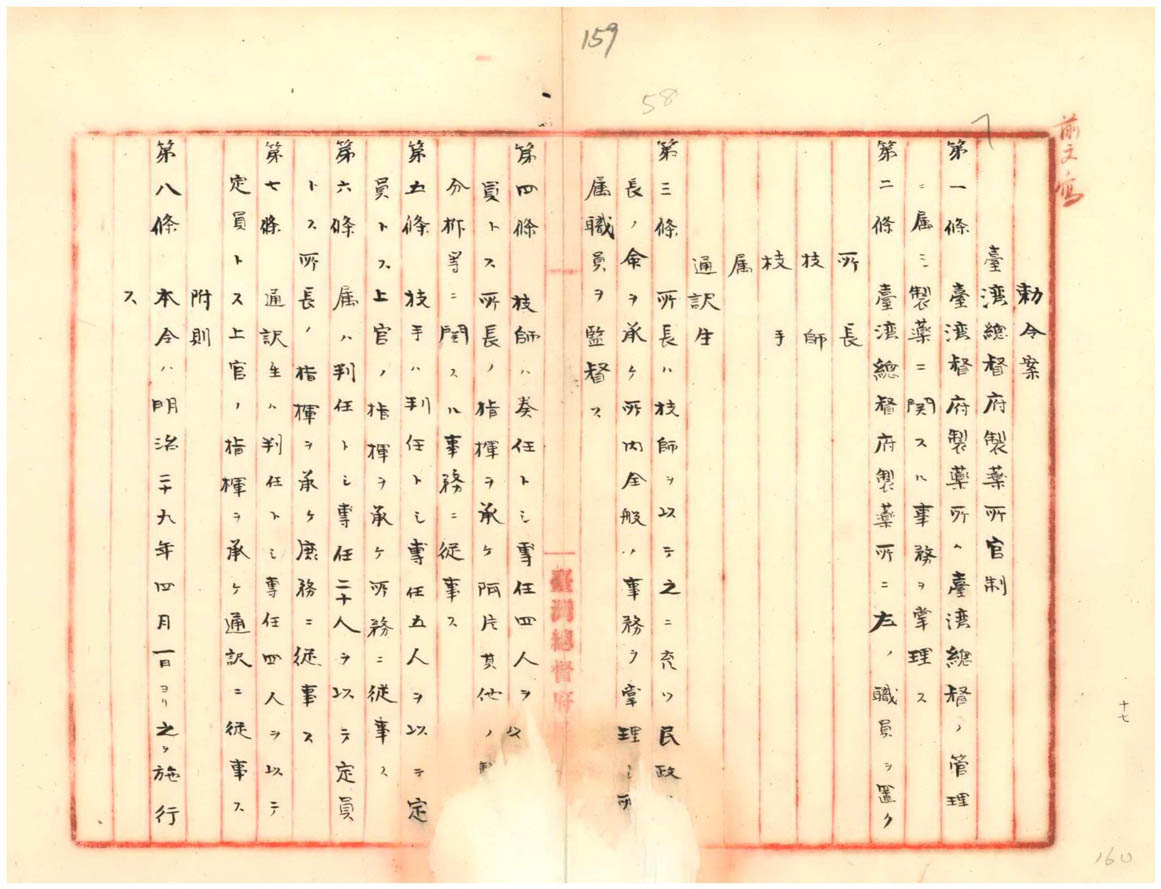 159
58
前文寫
勅令案
臺湾總督府製薬所官制
第一條　臺湾總督府製藥所ハ臺湾總督ノ管理
ニ属シ製藥ニ関スル事務ヲ掌理ス
第二條　臺湾總督府製薬所ニ左ノ職員ヲ置ク
所長
技師
技手
属
通訳生
第三條　所長ハ技師ヲ以テ之ニ充ツ民政
長ノ命ヲ承ケ所内全般ノ事務ヲ掌理シ所
属職員ヲ監督ス
第四條　技師ハ奏任トシ專任四人ヲ以
員トス所長ノ指揮ヲ承ケ阿片其他ノ製
分析等ニ関スル事務ニ從事ス
第五條　技手ハ判任トシ專任五人ヲ以テ定
員トス上官ノ指揮ヲ承ケ所務ニ従事ス
第六條　属ハ判任トシ專任二十人ヲ以テ定員
トス所長ノ指揮ヲ承ケ庶務ニ従事ス
第七條　通訳生ハ判任トシ專任四人ヲ以テ
定員トス上官ノ指揮ヲ承ケ通訳ニ従事ス
附則
第八條　本令ハ明治二十九年四月一日ヨリ之ヲ施行
ス
臺灣總督府
十七
160